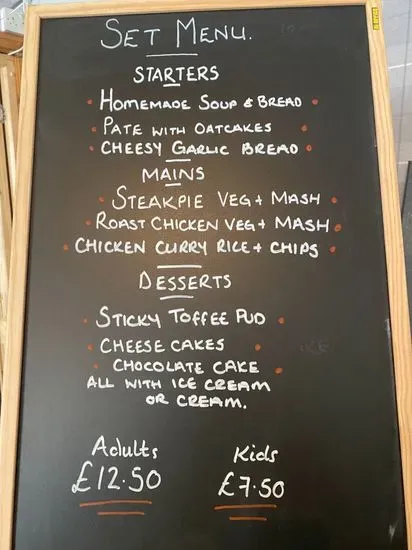 SET MENU.
STARTERS
• HOMEMADE SOUP & BREAD •
• PATE WITH OATCAKES •
• CHEESY GARLIC BREAD •
MAINS
• STEAKPIE VEG + MASH •
• ROAST CHICKEN VEG + MASH •
• CHICKEN CURRY RICE + CHIPS •
DESSERTS
• STICKY TOFFEE PUD •
• CHEESE CAKES •
• CHOCOLATE CAKE •
ALL WITH ICE CREAM
OR CREAM.
Adults Kids
£12.50 £7.50